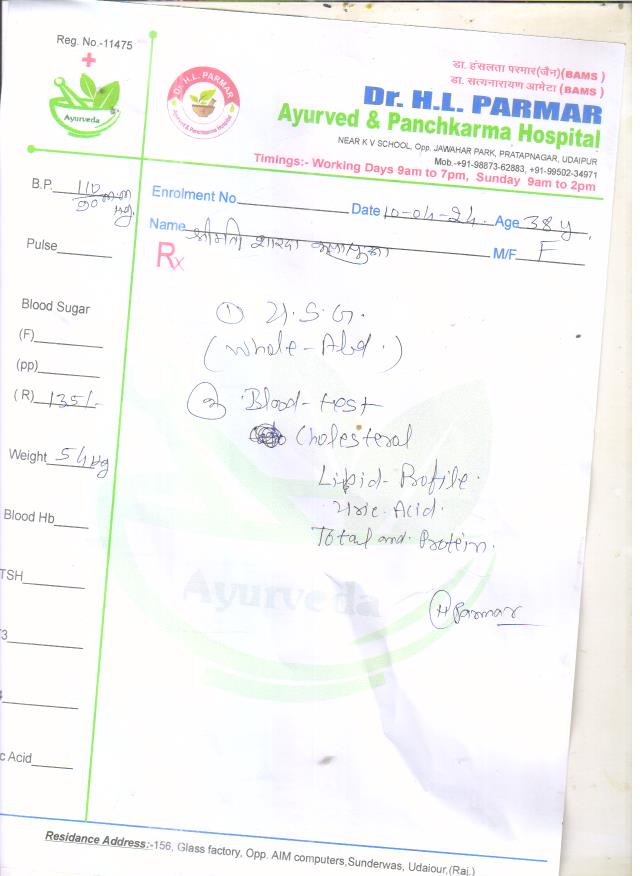 Reg. No.-11475
Ayurveda
Dr. H.L. PARMAR
Ayurved & Panchkarma Hospital
डा. हंसलता परमार(जैन)(BAMS )
डा. सत्यनारायण आमेटा (BAMS )
Dr. H.L. PARMAR
Ayurved & Panchkarma Hospital
NEAR K V SCHOOL, Opp. JAWAHAR PARK, PRATAPNAGAR, UDAIPUR
Mob.-+91-98873-62883, +91-99502-34971
Timings:- Working Days 9am to 7pm, Sunday 9am to 2pm
B.P. 110
90 mm
Hg.
Enrolment No.
Date 10-04-24. Age 38 y.
Name श्रीमति शारदा
M/F F
Rx
Pulse
Blood Sugar
(F)
(pp)
( R) 135/-
Weight 54 kg
Blood Hb
TSH
3
c Acid
① U.S.G.
(Whole-Abd.)
② Blood-test
Cholesterol
Lipid-Profile.
Uric-Acid.
Total and. Protein.
Ayurveda
H Parmar
Residance Address:-156, Glass factory, Opp. AIM computers,Sunderwas, Udaiour,(Raj.)